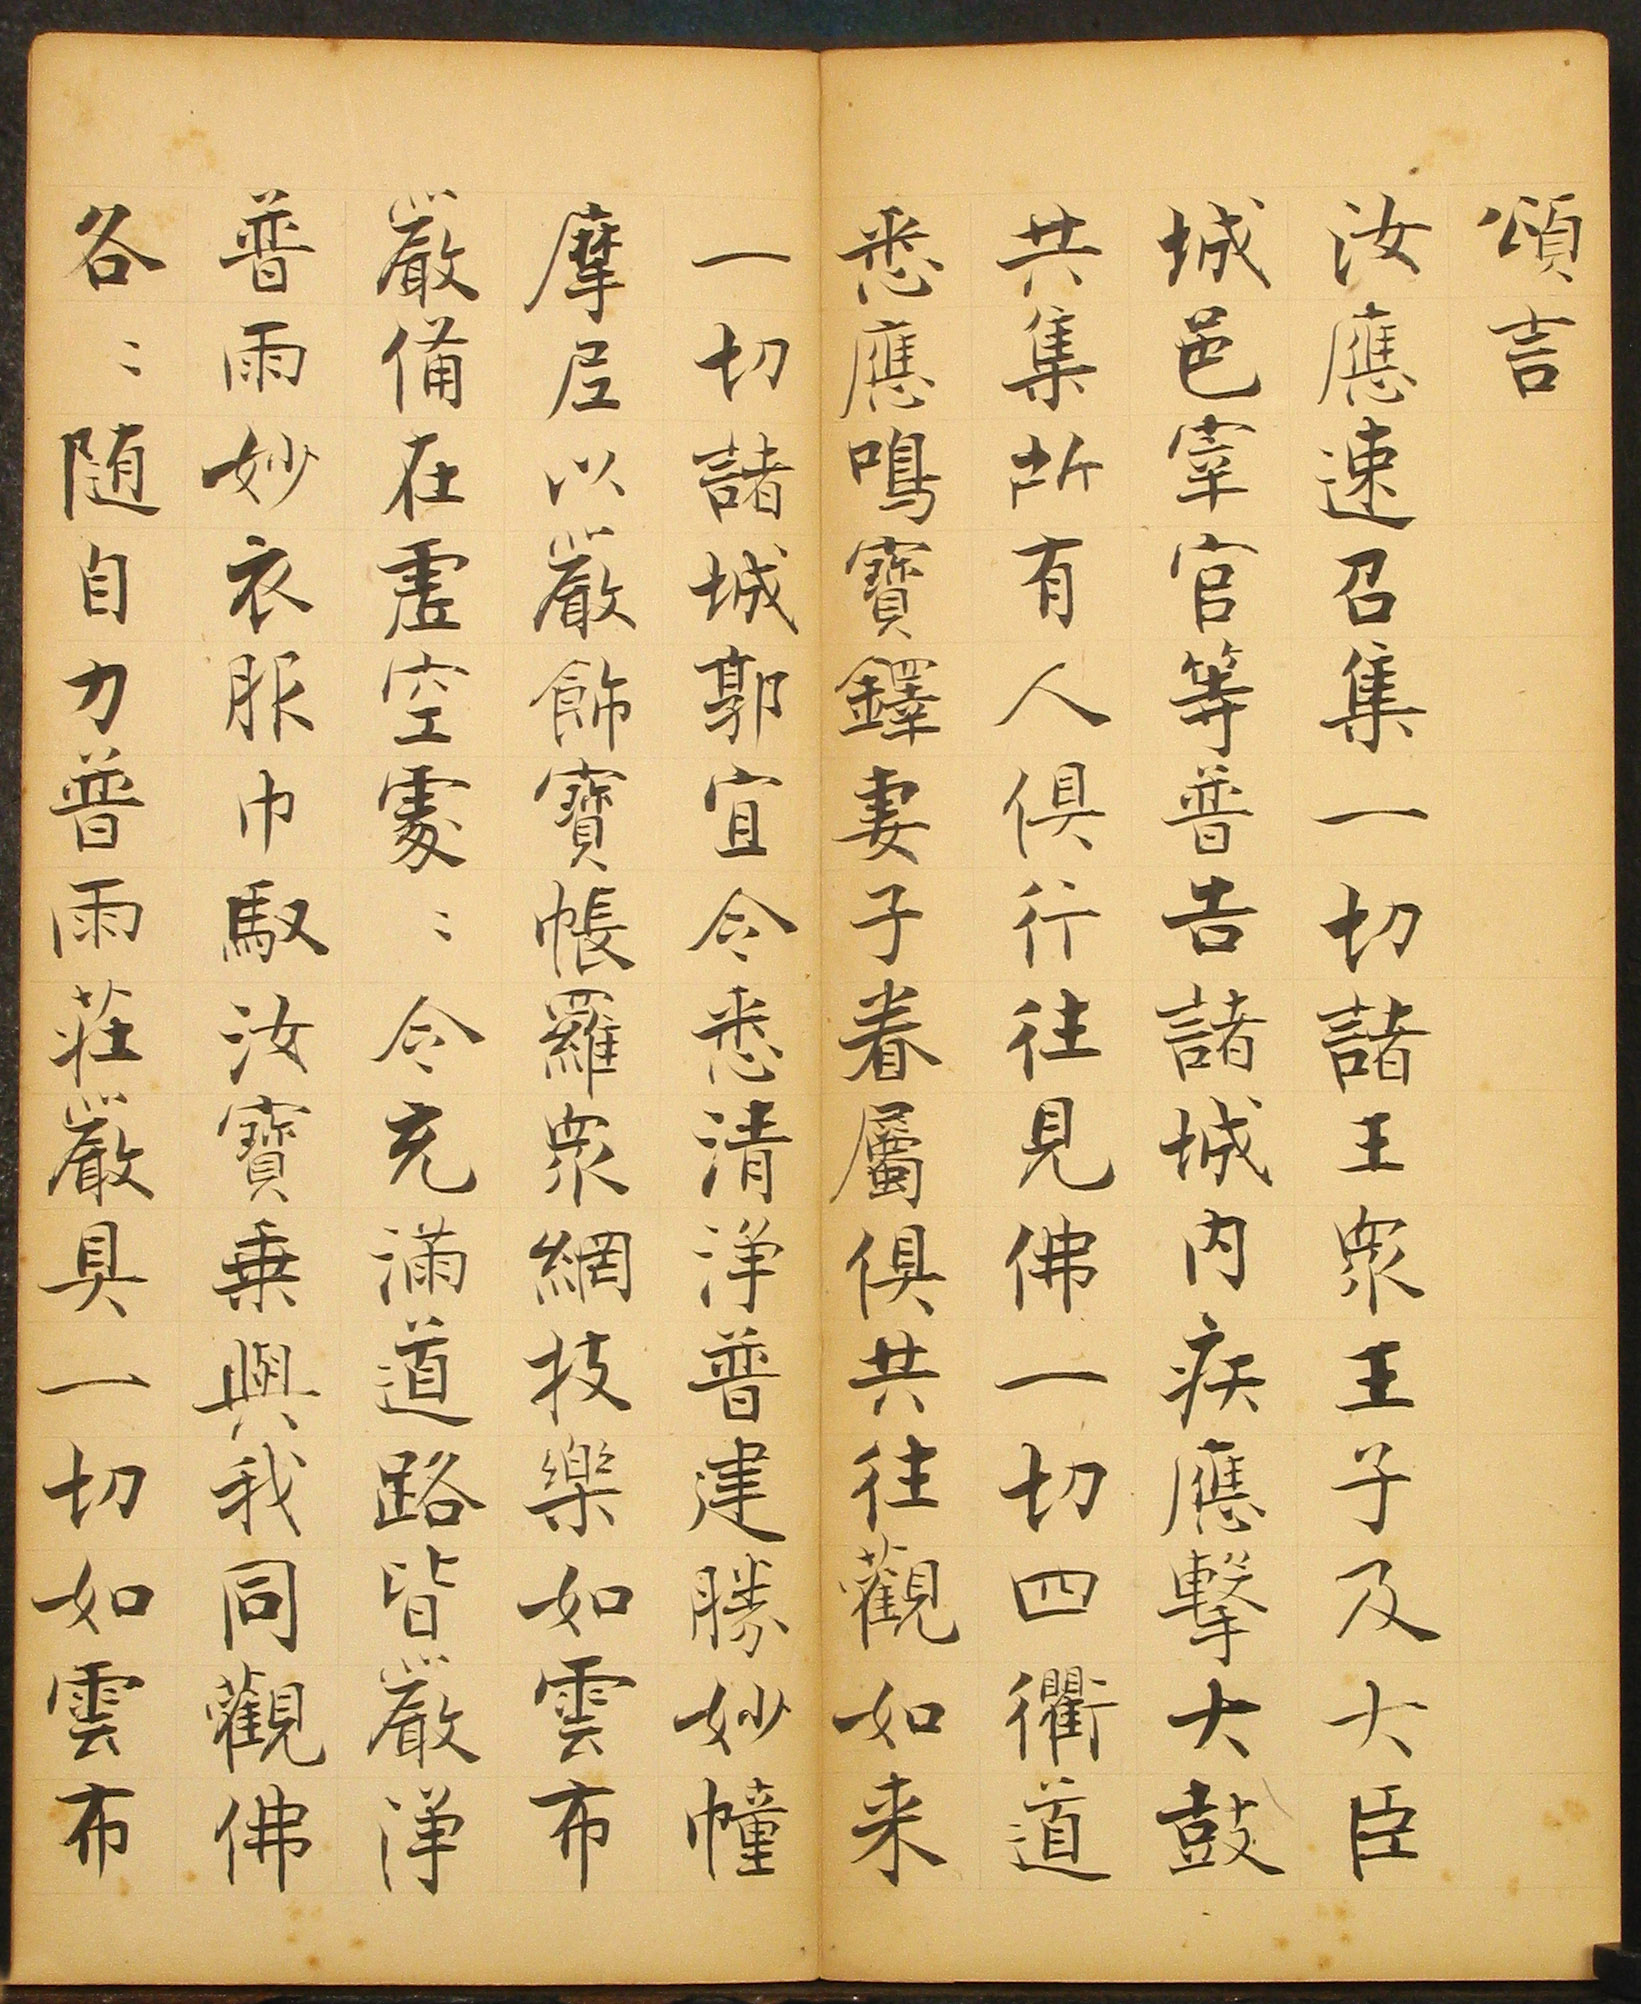 頌言
汝應速召集一切諸王衆王子及大臣
城邑宰官等普告諸城内疾應擊大鼓
共集所有人俱行往見佛一切四衢道
悉應鳴寶鐸妻子眷屬俱共往觀如来
一切諸城郭宜令悉清浄普建勝妙幢
摩尼以嚴飾寶帳羅衆網技樂如雲布
嚴備在虚空處〻令充滿道路皆嚴浄
普雨妙衣服巾馭汝寶乗與我同觀佛
各〻随自力普雨莊嚴具一切如雲布